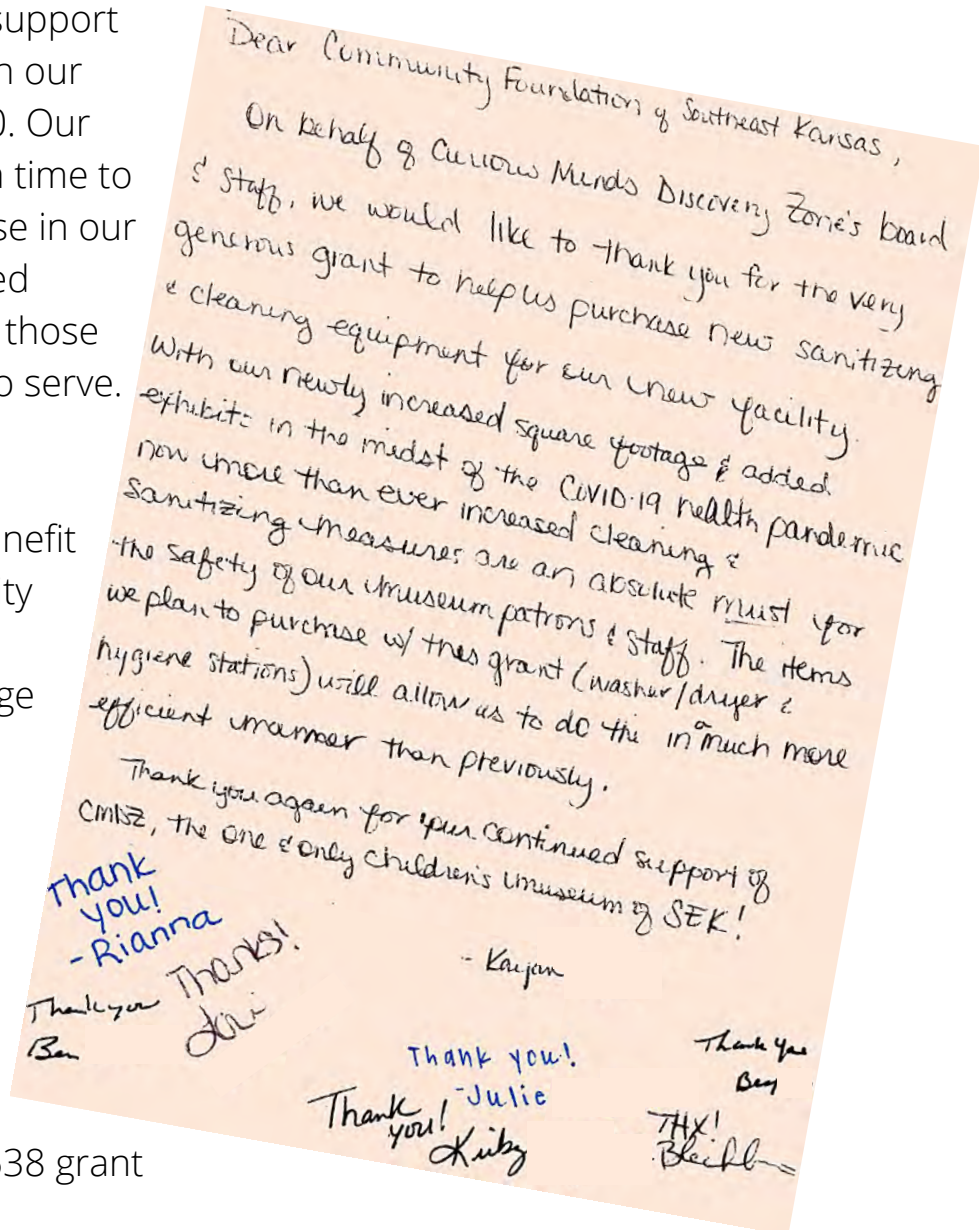 support
n our
0. Our
n time to
se in our
ed
those
o serve.
enefit
ty
ge
38 grant
Dear Community Foundation of Southeast Kansas,
On behalf of Curious Minds Discovery Zone's board
& staff, we would like to thank you for the very
generous grant to help us purchase new sanitizing
& cleaning equipment for our new facility.
With our newly increased square footage & added
exhibits in the midst of the COVID-19 health pandemic
now more than ever increased cleaning &
sanitizing measures are an absolute must for
the safety of our museum patrons & staff. The items
we plan to purchase w/ this grant (washer/dryer &
hygiene stations) will allow us to do the in a much more
efficient manner than previously.
Thank you again for your continued support of
CMDZ, the one & only children's museum of SEK!
- Karjan
Thank
you!
- Rianna
Thanks!
Lori
Thank you
Ben
Thank you!
-Julie
Thank
you!
Kirby
Thank you
THX!